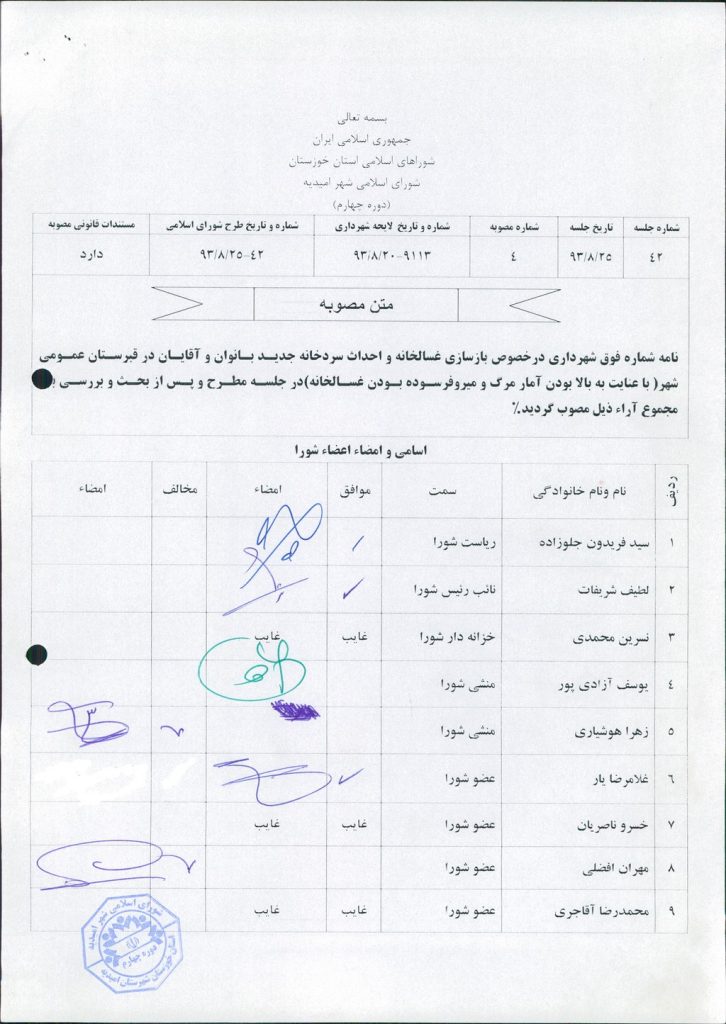 بسمه تعالی
جمهوری اسلامی ایران
شوراهای اسلامی استان خوزستان
شورای اسلامی شهر امیدیه
(دوره چهارم)
شماره جلسه تاریخ جلسه شماره مصوبه شماره و تاریخ لایحه شهرداری شماره و تاریخ طرح شورای اسلامی مستندات قانونی مصوبه
۴۲ ۹۳/۸/۲۵ ۴ ۹۳/۸/۲۰-۹۱۱۳ ۹۳/۸/۲۵-۴۲ دارد
متن مصوبه
نامه شماره فوق شهرداری درخصوص بازسازی غسالخانه و احداث سردخانه جدید بانوان و آقایان در قبرستان عمومی
شهر( با عنایت به بالا بودن آمار مرگ و میروفرسوده بودن غسالخانه)در جلسه مطرح و پس از بحث و بررسی با
مجموع آراء ذیل مصوب گردید٪
اسامی و امضاء اعضاء شورا
ردیف نام ونام خانوادگی سمت موافق امضاء مخالف امضاء
۱ سید فریدون جلوزاده ریاست شورا
۲ لطیف شریفات نائب رئیس شورا
۳ نسرین محمدی خزانه دار شورا غایب غایب
۴ یوسف آزادی پور منشی شورا
۵ زهرا هوشیاری منشی شورا
۶ غلامرضا یار عضو شورا
۷ خسرو ناصریان عضو شورا غایب غایب
۸ مهران افضلی عضو شورا
۹ محمدرضا آقاجری عضو شورا غایب غایب
شورای اسلامی شهر امیدیه
دوره چهارم
استان خوزستان شهرستان امیدیه